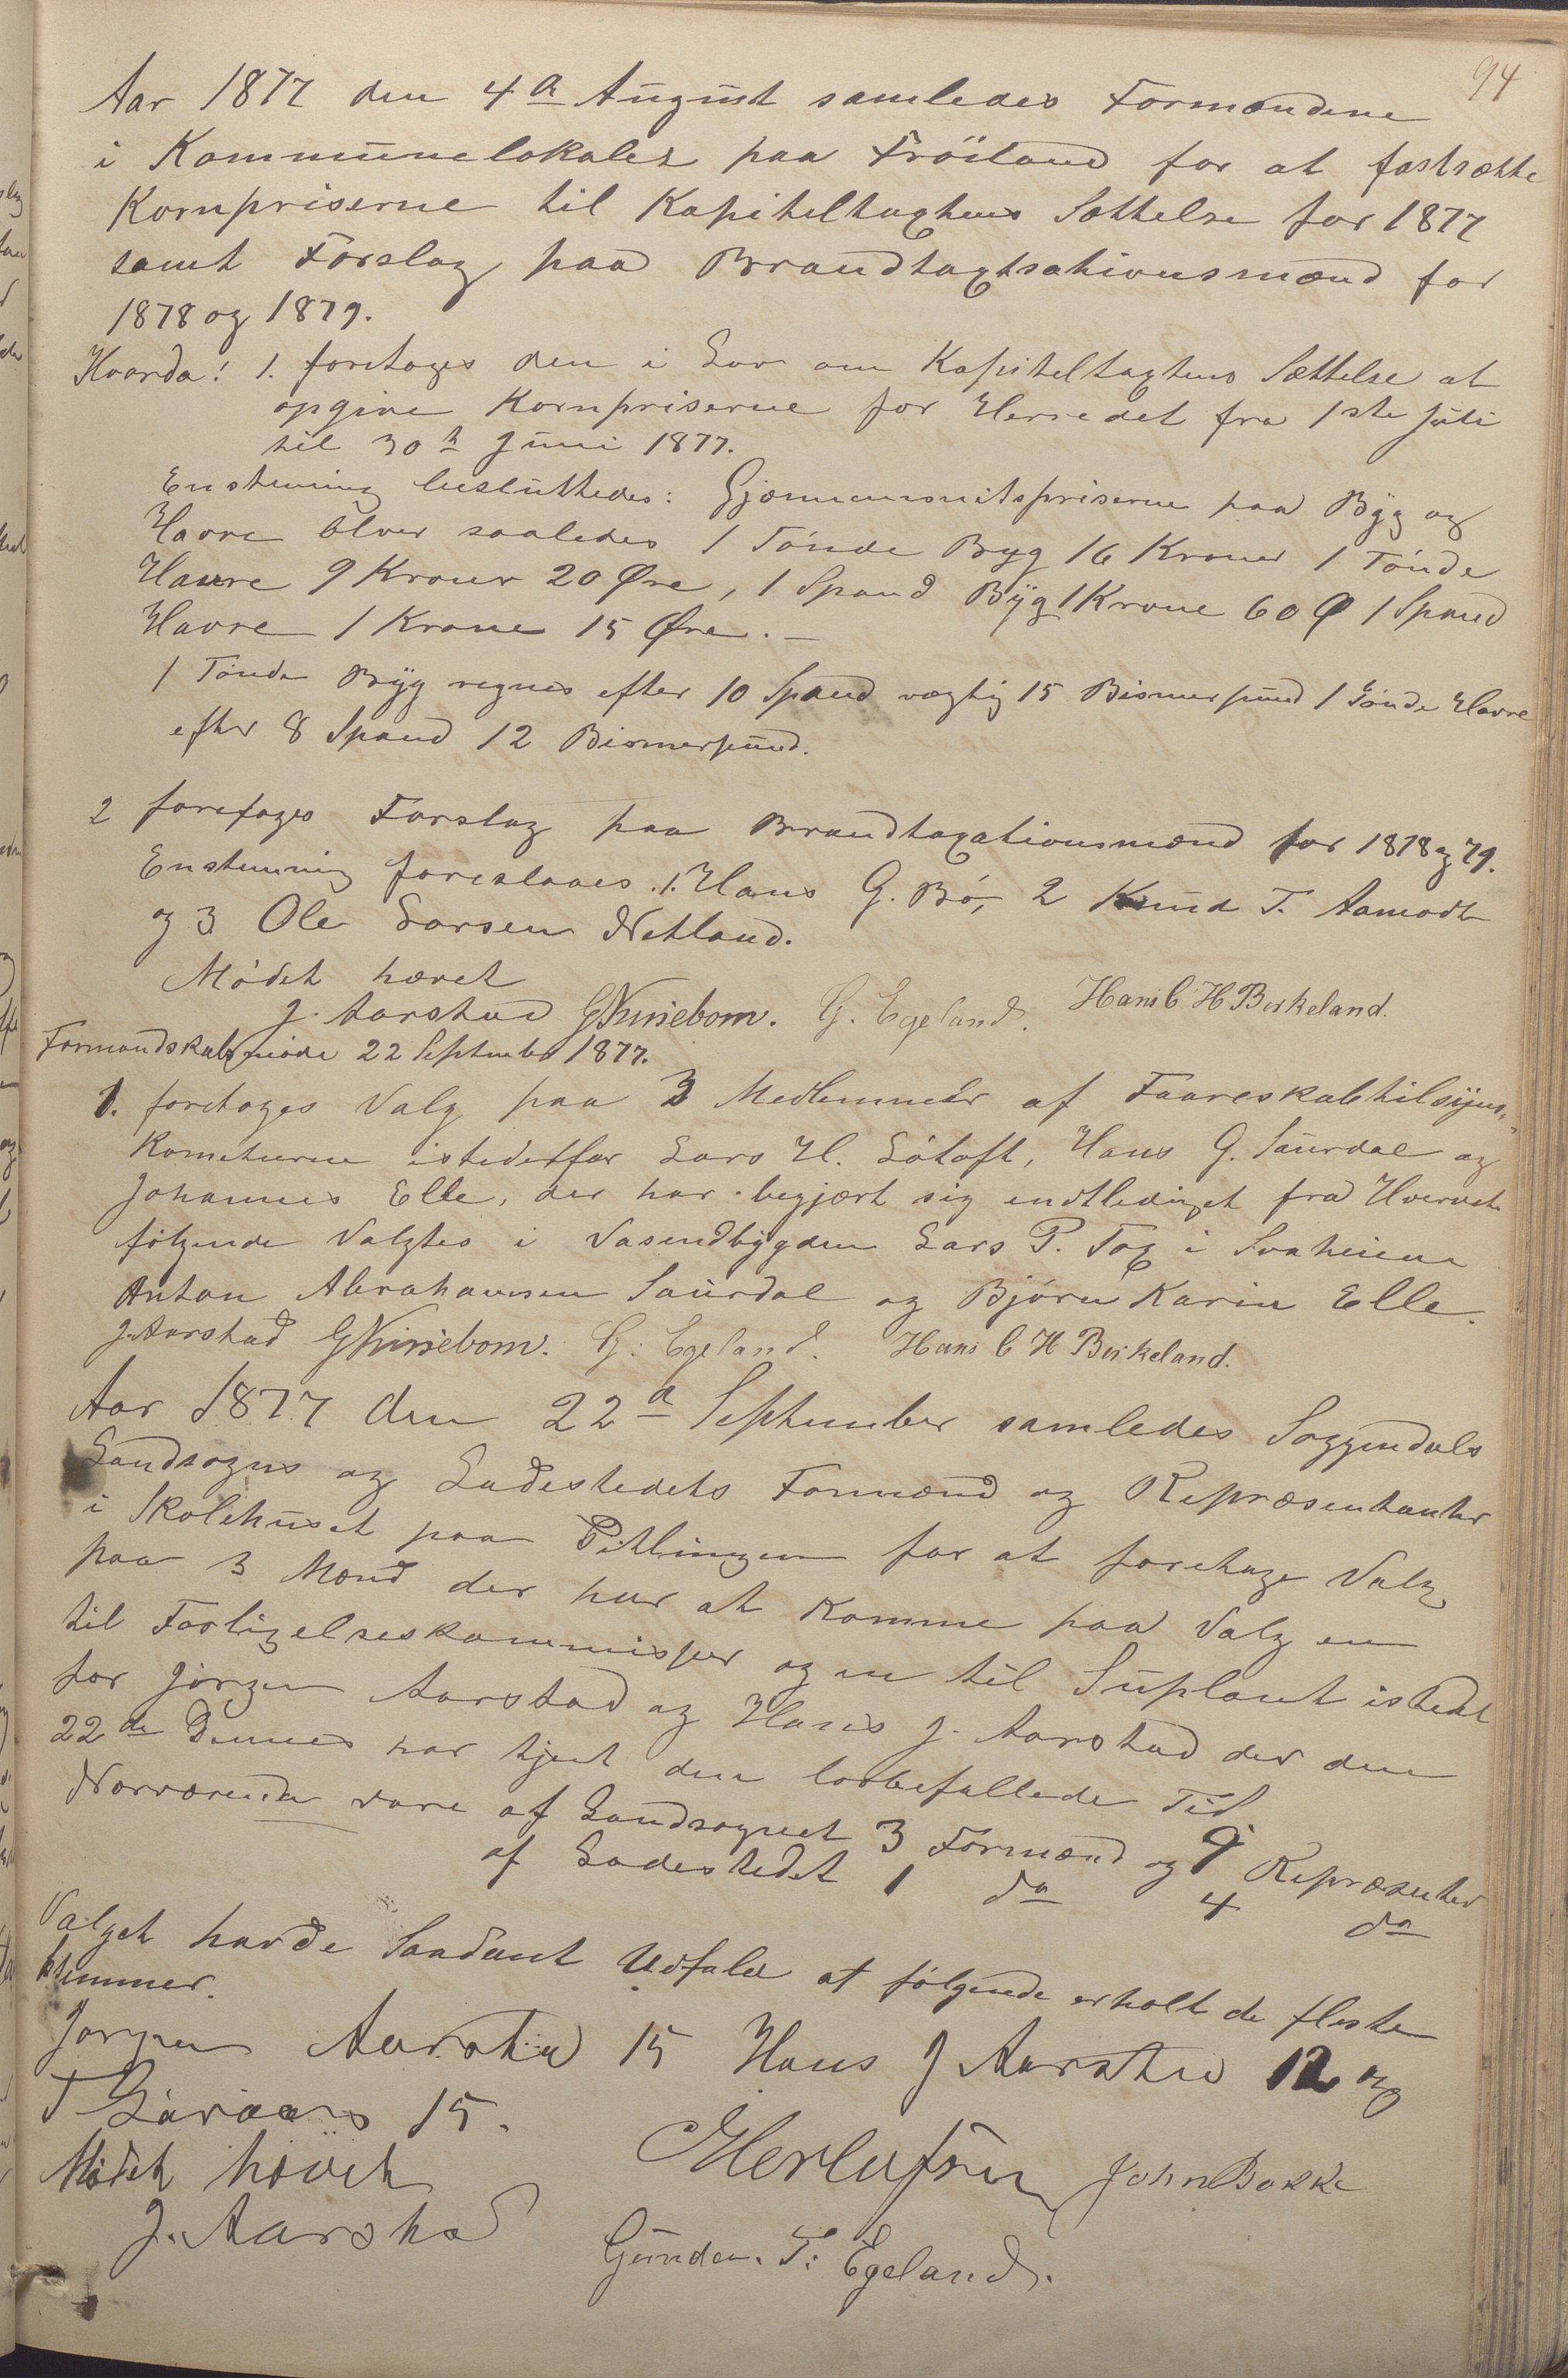 94
Aar 1877 den 4de August samledes Formændene
i Kommunelokalet paa Frøiland for at fastsætte
Kornpriserne til Kapiteltaxtens Sættelse for 1877
samt Forslag paa Brandtaxtsationsmænd for
1878 og 1879.
Hvorda! 1. foretages den i Lov om Kapiteltaxtens Sættelse at
opgive Kornpriserne for Herredet fra 1ste Juli
til 30te Juni 1877.
Enstemmig besluttedes: Gjennemsnitspriserne paa Byg og
Havre blver saaledes 1 Tønde Byg 16 Kroner 1 Tønde
Havre 9 Kroner 20 Øre, 1 Spand Byg 1 Krone 60 Ø 1 Spand
Havre 1 Krone 15 Øre. —
1 Tønde Byg regnes efter 10 Spand vægtig 15 Bismerpund 1 Tønde Havre
efter 8 Spand 12 Bismerpund.
2 foretages Forslag paa Brandtaxationsmænd for 1878 og 79.
Enstemmig foreslaaes .1. Hans G. Bø, 2 Knud T. Aamodt
og 3 Ole Larsen Netland.
Mødet hævet
J. Aarstad G Kinnebom. G. Egeland. Hans C H Birkeland.
Formandskabsmøde 22 September 1877.
1. foretages Valg paa 3 Medlemmer af Faareskabtilsyns-
Kometeerne istedetfor Lars H. Løtoft, Hans G. Saurdal og
Johannes Elle, der har begjært sig endtlediget fra Hvervet
følgende Valgtes i Vasendbygden Lars P. Tox i Svaheiene
Anton Abrahamsen Saurdal og Bjørn Karin Elle.
J. Aarstad G Kinnebom. G. Egeland. Hans C H Birkeland.
Aar 1877 den 22de September samledes Soggendals
Landsogns og Ladestedets Formænd og Repræsentanter
i Skolehuset paa Pitlingen for at foretage Valg
paa 3 Mænd der har at komme paa Valg en
til Forligelseskommissær og en til Suplant istedet
for Jørgen Aarstad og Hans J. Aarstad der den
22de Dennes har tjent den lovbefallede Tid
Nærværende vare af Landsognet 3 Formænd og 9 Repræsenter
af Ladestedet 1 do 4 do
Valget havde Saadant Udfald at følgende erholt de fleste
stemmer.
Jørgen Aarstad 15 Hans J Aarstad 12 og
T 15.
Mødet hævet Herlufsen John Bakke
J. Aarstad Gunder. T. Egeland.